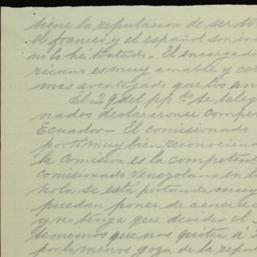 tiene la reputacion de ser
el frances y el español son
no lo hé tratado - El encargado
ricano es muy amable y
mas aventajado que los
El 29 del ppdo se
nados declararonse
Ecuador - El comisionado
porte muy bien, reconociendo
la Comision es la competente
comisionado Venezolano en
ñola se está portando muy
puedan poner de acuerdo
y no tenga que decidir el
tememos que nos quiten á
por lo menos goza de la